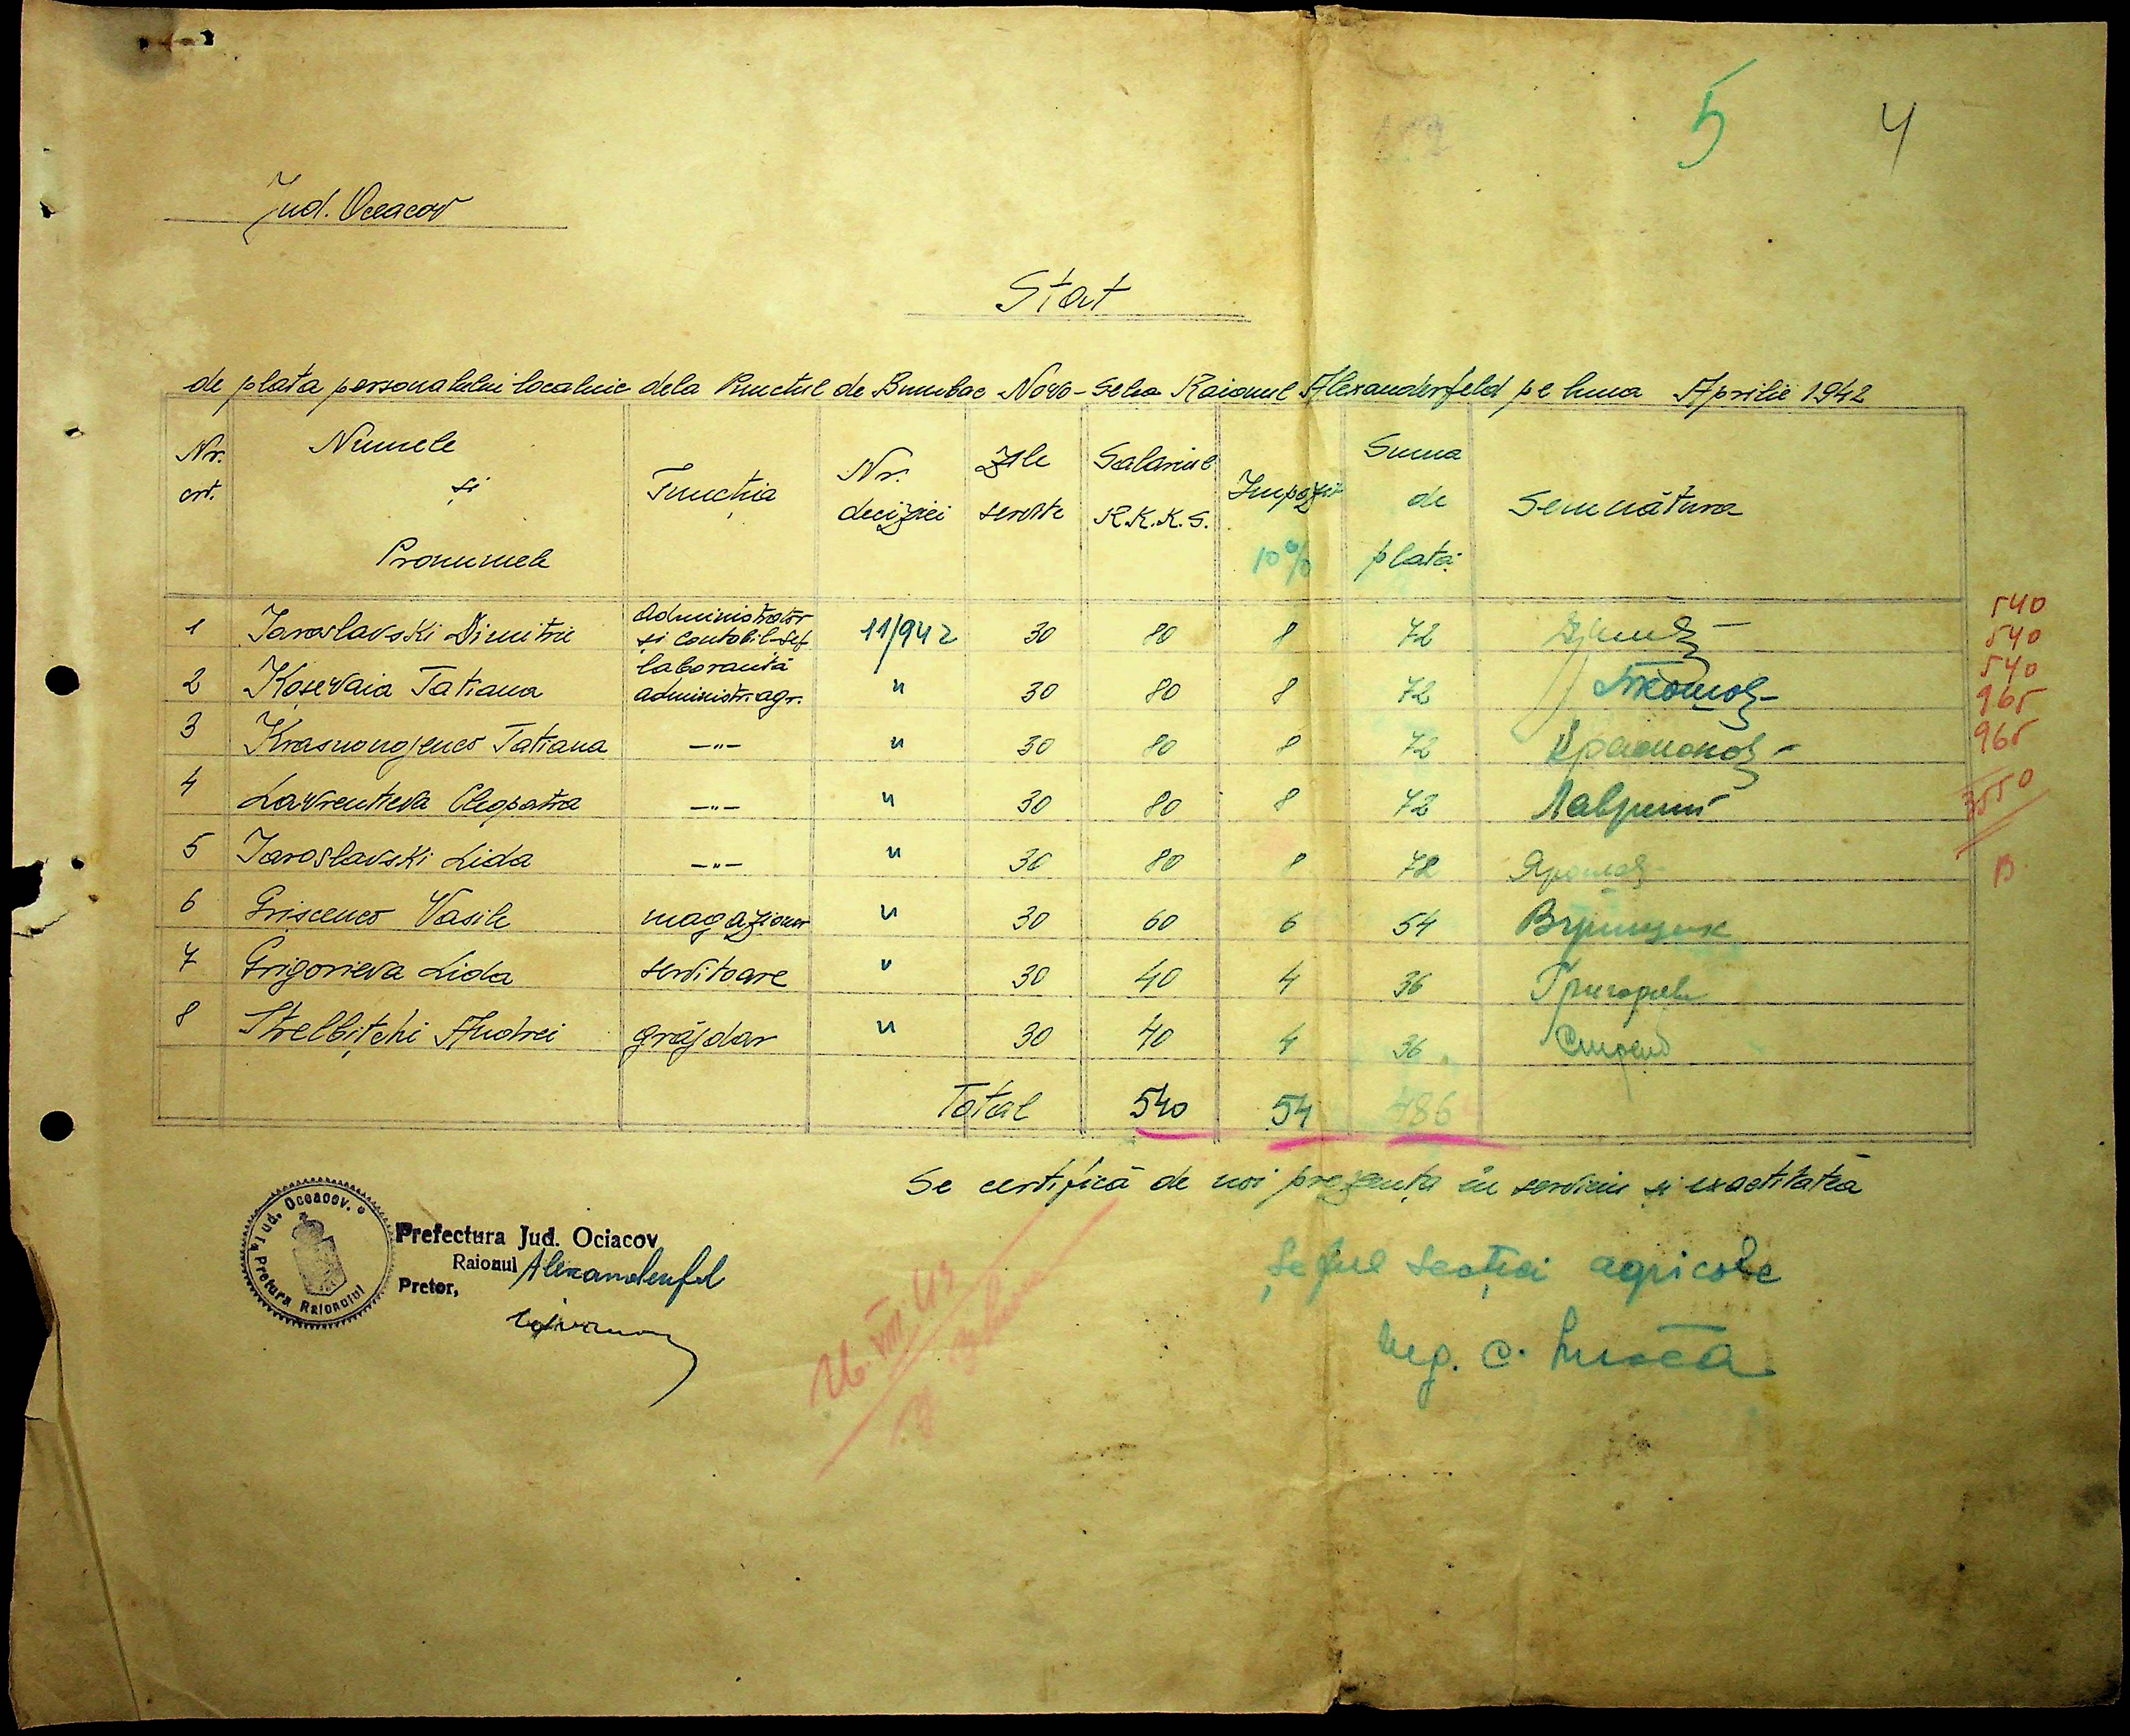 5 4
Jud. Oceacov
Stat
de plata personalului localnic dela Punctul de Bumbac Novo-Selca Raionul Alexanderfeld pe luna Aprilie 1942
Nr. crt. Numele și Pronumele Funcția Nr. deciziei Zile servite Salariul R.K.K.S. Impozit 10% Suma de plată Semnătura
1 Iaroslavski Dimitrie administrator și contabil-șef 11/942 30 80 8 72
2 Koșevaia Tatiana laborantă administr. agr. " 30 80 8 72
3 Krasnonojenco Tatiana -"- " 30 80 8 72
4 Lavrentieva Cleopatra -"- " 30 80 8 72
5 Iaroslavski Lida -"- " 30 80 8 72
6 Grișcenco Vasile magazioner " 30 60 6 54
7 Grigorieva Lida servitoare " 30 40 4 36
8 Strelbițchi Andrei grăjdar " 30 40 4 36
Total 540 54 486
540
540
540
965
965
3550
B.
Se certifică de noi prezența în serviciu și exactitatea
Jud. Oceacov.
Pretura Raionului
Prefectura Jud. Ociacov
Raionul Alexanderfeld
Pretor,
Șeful secției agricole
Ing. C.
26.VIII.42